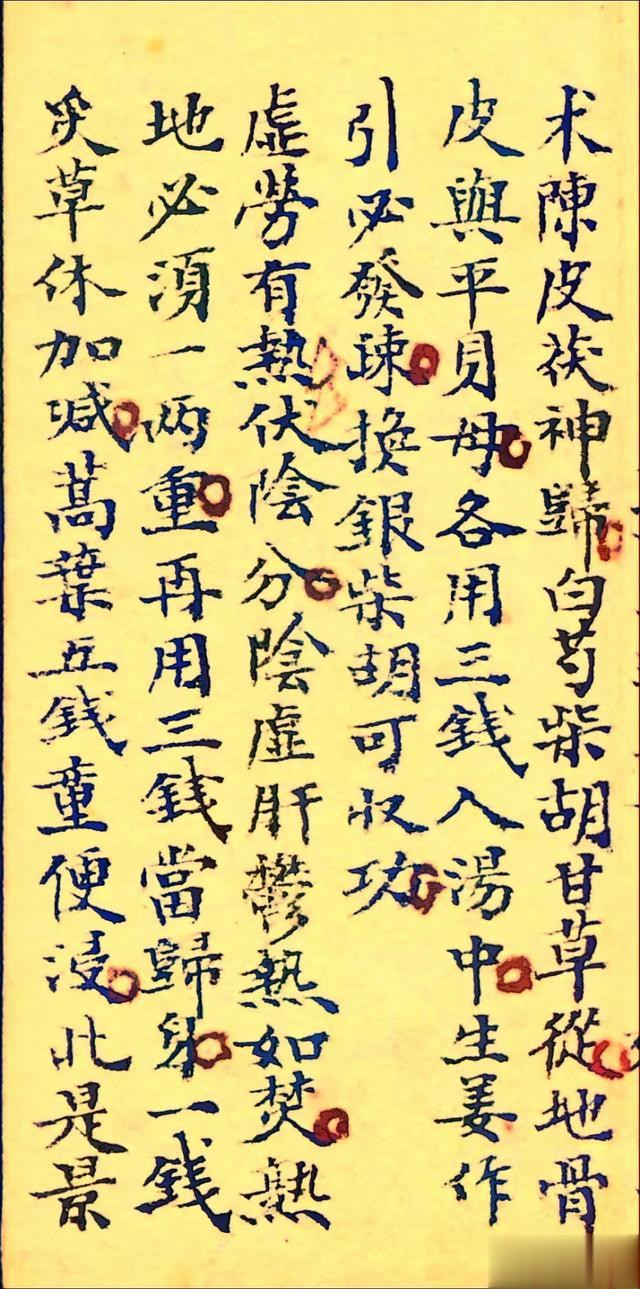 术陳皮茯神歸白芍柴胡甘草從地骨
皮與平貝母各用三錢入湯中生姜作
引必發疎換銀柴胡可收功
虛勞有熱伏陰分陰虛肝鬱熱如焚熟
地必須一兩重再用三錢當歸身一錢
炙草休加減蒿葉五錢童便浸此是景